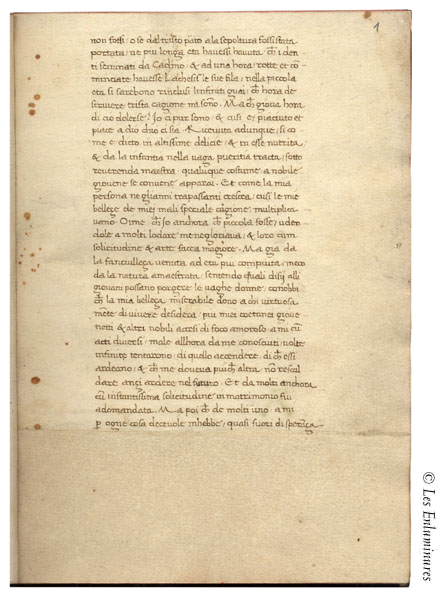 1
non fossi / o se dal tristo parto a la sepoltura fossi stata
portata / ne piu longa eta havessi havuta ch̄ i den
ti seminati da Cadmo / & ad una hora / rotte et cō
minciate havesse Lachesis le sue fila / nella piccola
eta si sarebono rinclusi linfiniti guai / ch̄ hora de
scrivere trista cagione mi sono. Ma ch̄ giova hora
di cio dolersi? Io ci pur sono / & cusi e piaciuto et
piace a dio ch̄ io ci sia. Ricevuta adunque / si co
me e dicto in altissime delicie / & in esse nutrita
& da la infantia nella vaga pueritia tracta / sotto
reverenda maestra qualunque costume a nobile
giovene se conviene apparai. Et come la mia
persona ne gli anni trapassanti crescea / cusi le mie
bellege de miei mali speciale cagione multiplica
vano Oime ch̄ io anchora ch̄ piccola fosse / uden
dole a molti lodare me ne gloriava / & loro cum
solicitudine & arte facea magiore. Ma gia da
la fanciullega venuta ad eta piu compiuta / meco
da la natura amaestrata / sentendo quali disij alli
giovani possano porgere le vaghe donne / conobbi
ch̄ la mia bellega miserabile dono a chi virtuosa
mēte di vivere desidera / piu miei coetanei giove
netti & altri nobili accesi di foco amoroso / a mi cū
acti diversi / male allhora da me conosciuti / volte
infinite tentarono / di quello accendere / di ch̄ essi
ardeano / & ch̄ me dovevua piuch̄ altra non rescal
dare anzi ardere nel futuro. Et da molti anchora
cū instantissima solicitudine in matrimonio fui
adomandata. Ma poi ch̄ de molti uno a mi
p ogne cosa decevole mhebbe / quasi fuori di sperāza
© Les Enluminures